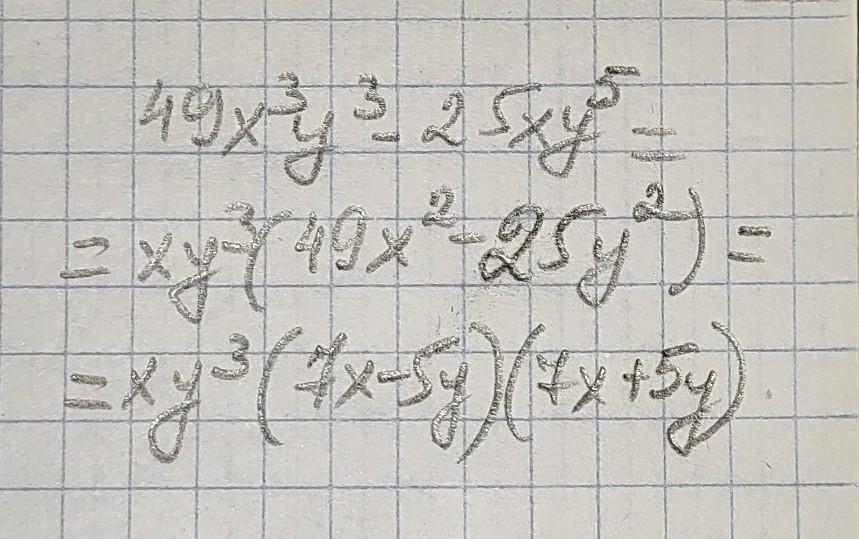 49x³y³ - 25xy⁵ =
= xy³(49x² - 25y²) =
= xy³(7x - 5y)(7x + 5y)